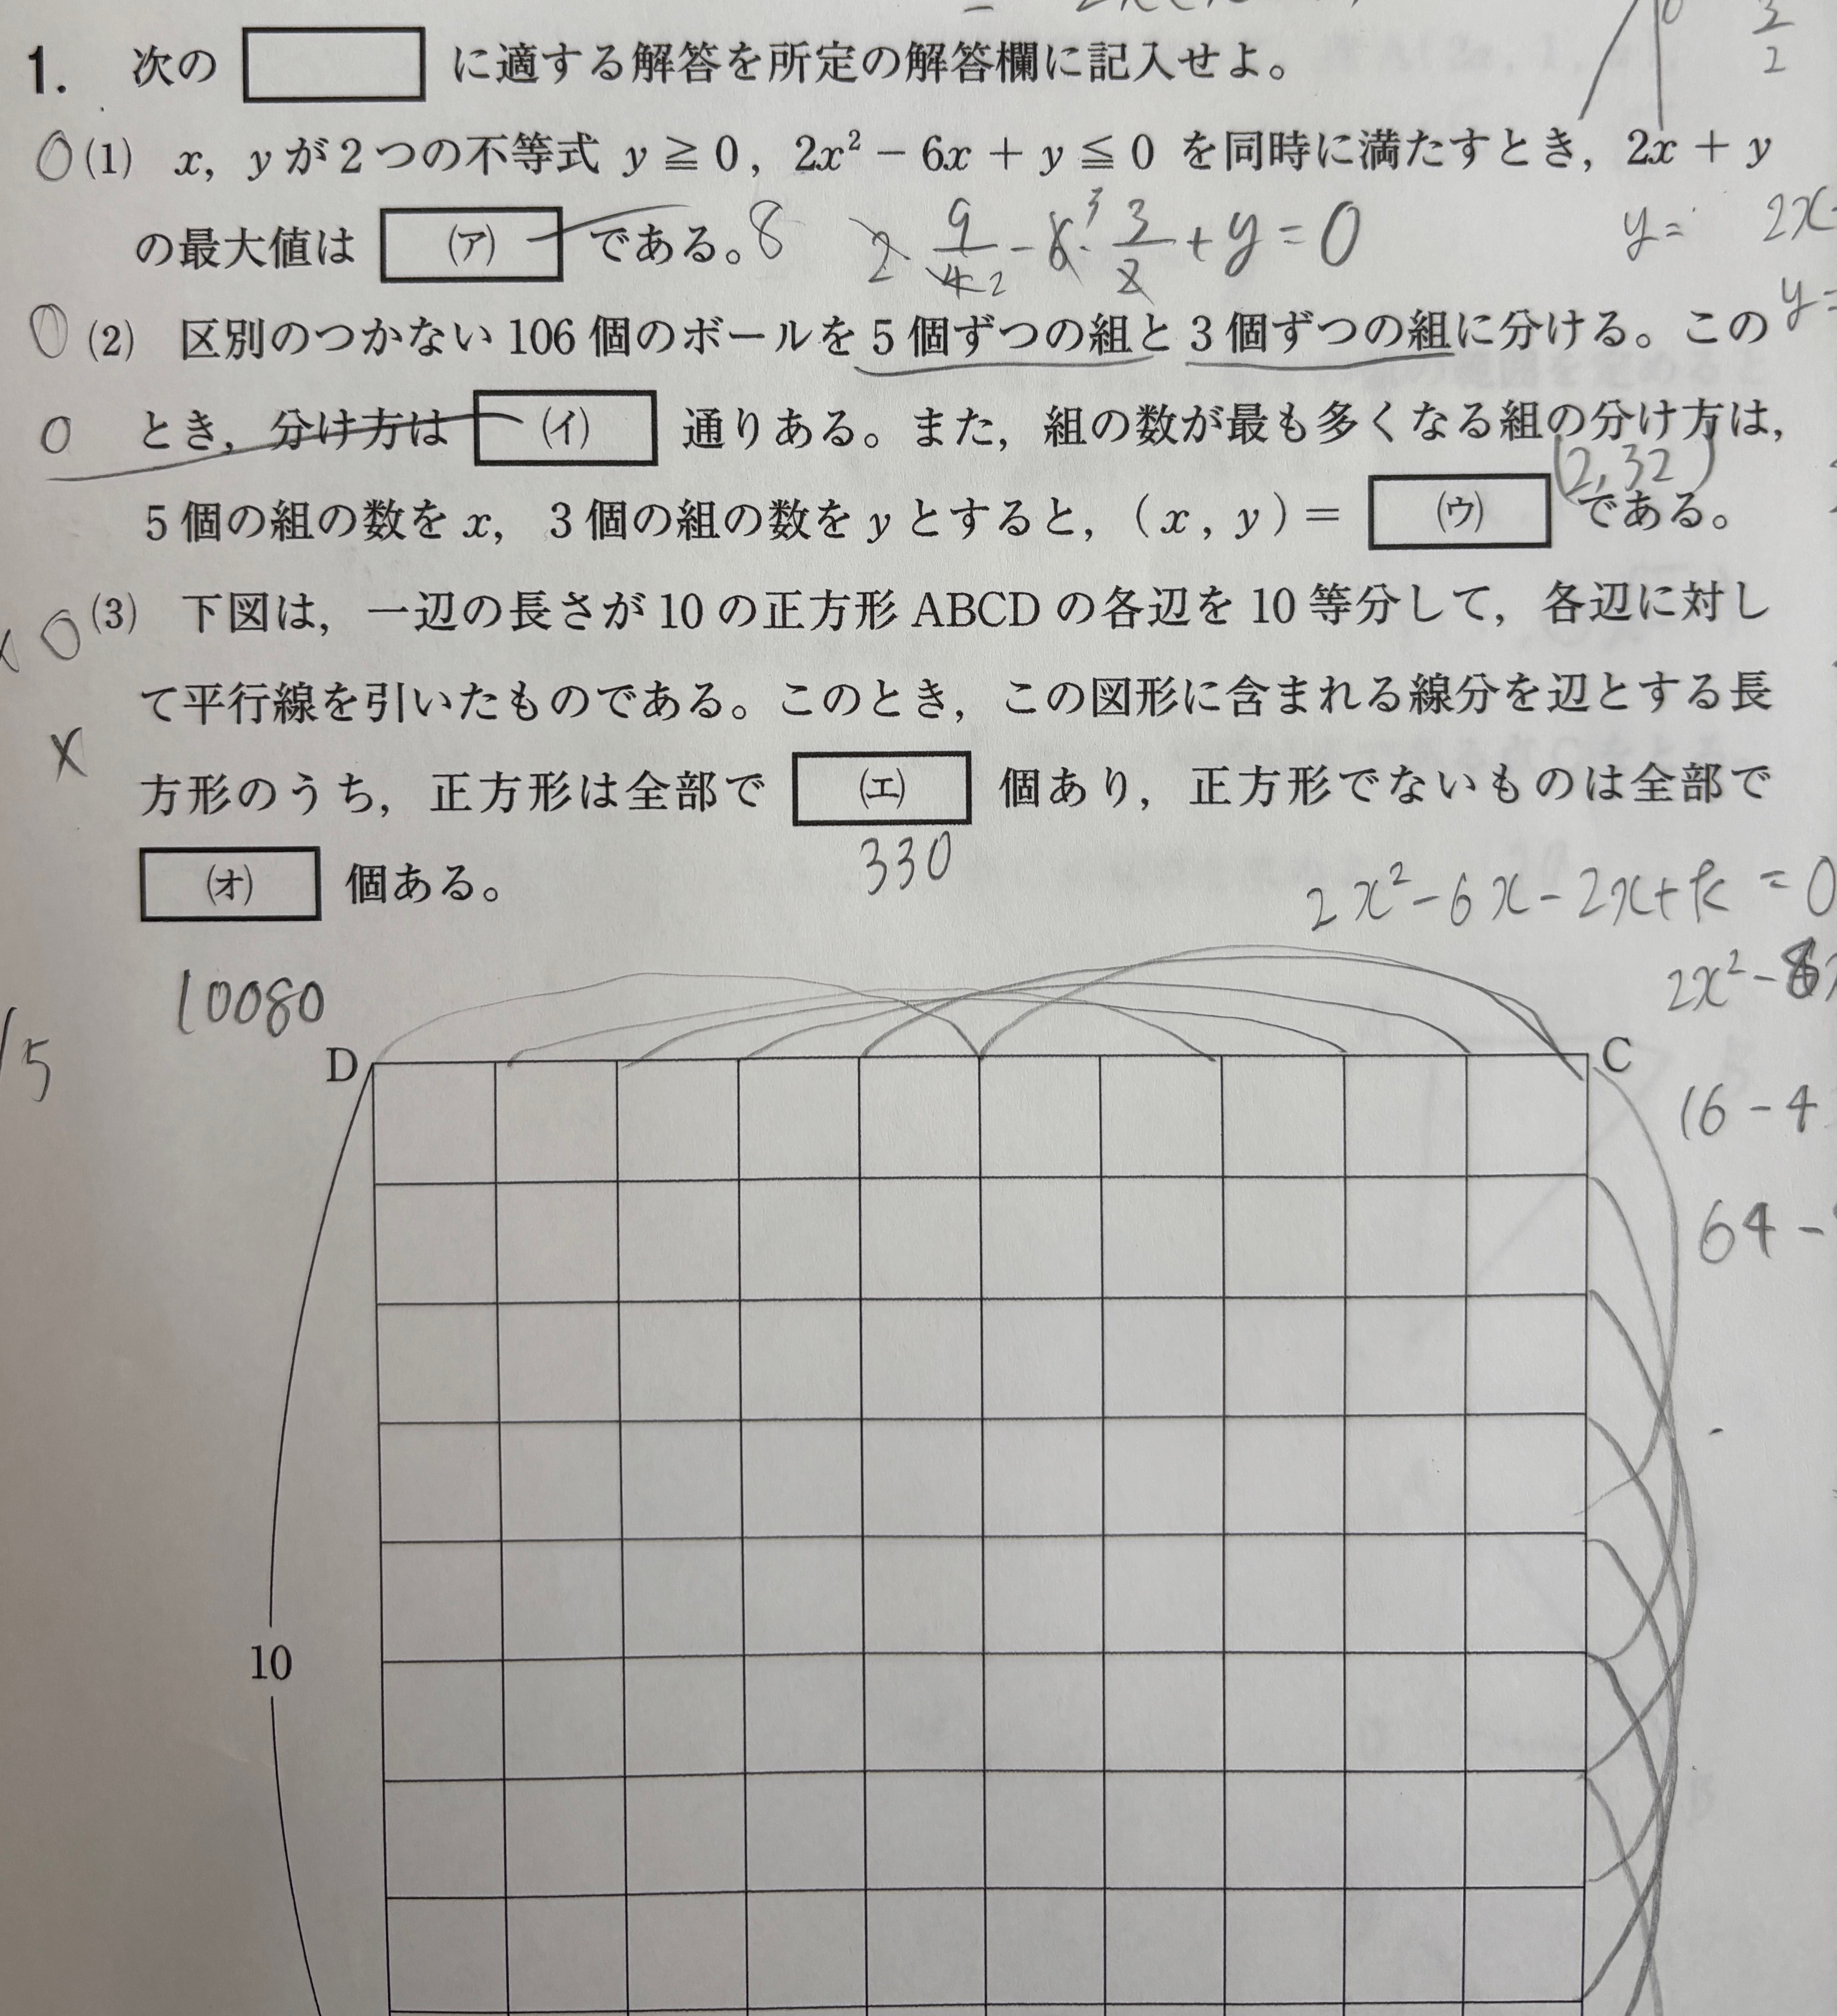 1. 次の に適する解答を所定の解答欄に記入せよ。
(1) x, y が 2 つの不等式 y ≧ 0, 2x² − 6x + y ≦ 0 を同時に満たすとき, 2x + y
の最大値は (ア) である。8
2・9/42 − 6・3 3/2 + y = 0
y = 2x
y =
(2) 区別のつかない 106 個のボールを 5 個ずつの組と 3 個ずつの組に分ける。この
とき, 分け方は (イ) 通りある。また, 組の数が最も多くなる組の分け方は,
(2, 32)
5 個の組の数を x, 3 個の組の数を y とすると, ( x , y ) = (ウ) である。
(3) 下図は, 一辺の長さが 10 の正方形 ABCD の各辺を 10 等分して, 各辺に対し
て平行線を引いたものである。このとき, この図形に含まれる線分を辺とする長
方形のうち, 正方形は全部で (エ) 個あり, 正方形でないものは全部で
330
(オ) 個ある。
2x² − 6x − 2x + k = 0
10080
2x² − 8
5
D
C
16 − 4
64 −
10